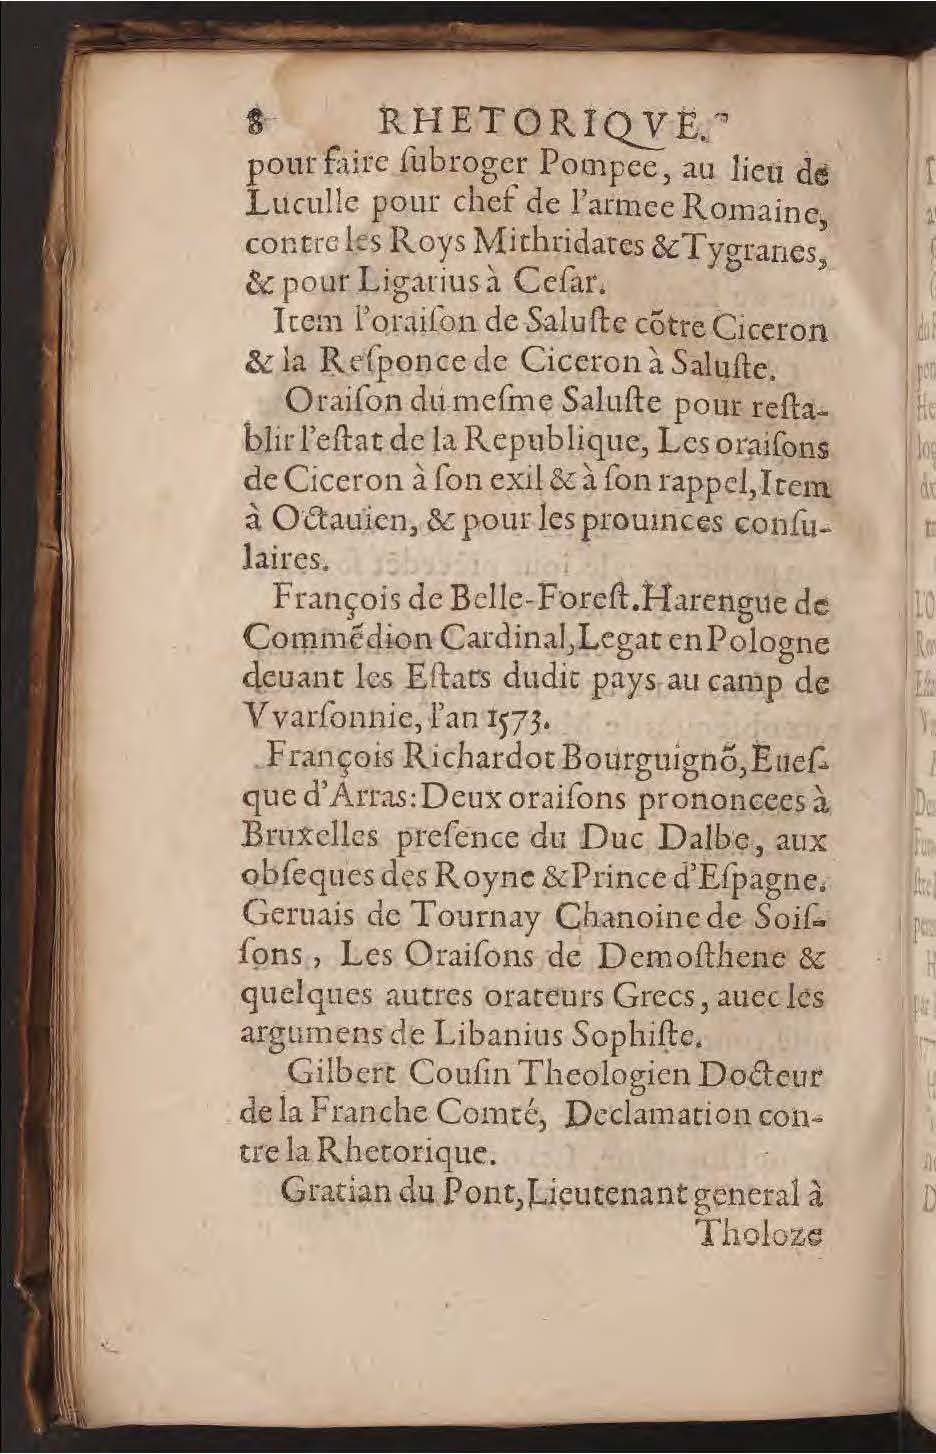 8 RHETORIQVE.
pour faire ſubroger Pompee, au lieu de
Luculle pour chef de l'armee Romaine,
contre les Roys Mithridates & Tygranes,
& pour Ligarius à Ceſar.
Item l'oraiſon de Saluſte cõtre Ciceron
& la Reſponce de Ciceron à Saluſte.
Oraiſon du meſme Saluſte pour reſta-
blir l'eſtat de la Republique, Les oraiſons
de Ciceron à ſon exil & à ſon rappel, Item
à Octauien, & pour les prouinces conſu-
laires.
François de Belle-Foreſt. Harengue de
Commẽdion Cardinal, Legat en Pologne
deuant les Eſtats dudit pays au camp de
Vvarſonnie, l'an 1573.
François Richardot Bourguignõ, Eueſ-
que d'Arras: Deux oraiſons prononcees à
Bruxelles preſence du Duc Dalbe, aux
obſeques des Royne & Prince d'Eſpagne.
Geruais de Tournay Chanoine de Soiſ-
ſons, Les Oraiſons de Demoſthene &
quelques autres orateurs Grecs, auec les
argumens de Libanius Sophiſte.
Gilbert Couſin Theologien Docteur
de la Franche Comté, Declamation con-
tre la Rhetorique.
Gratian du Pont, Lieutenant general à
Tholoze